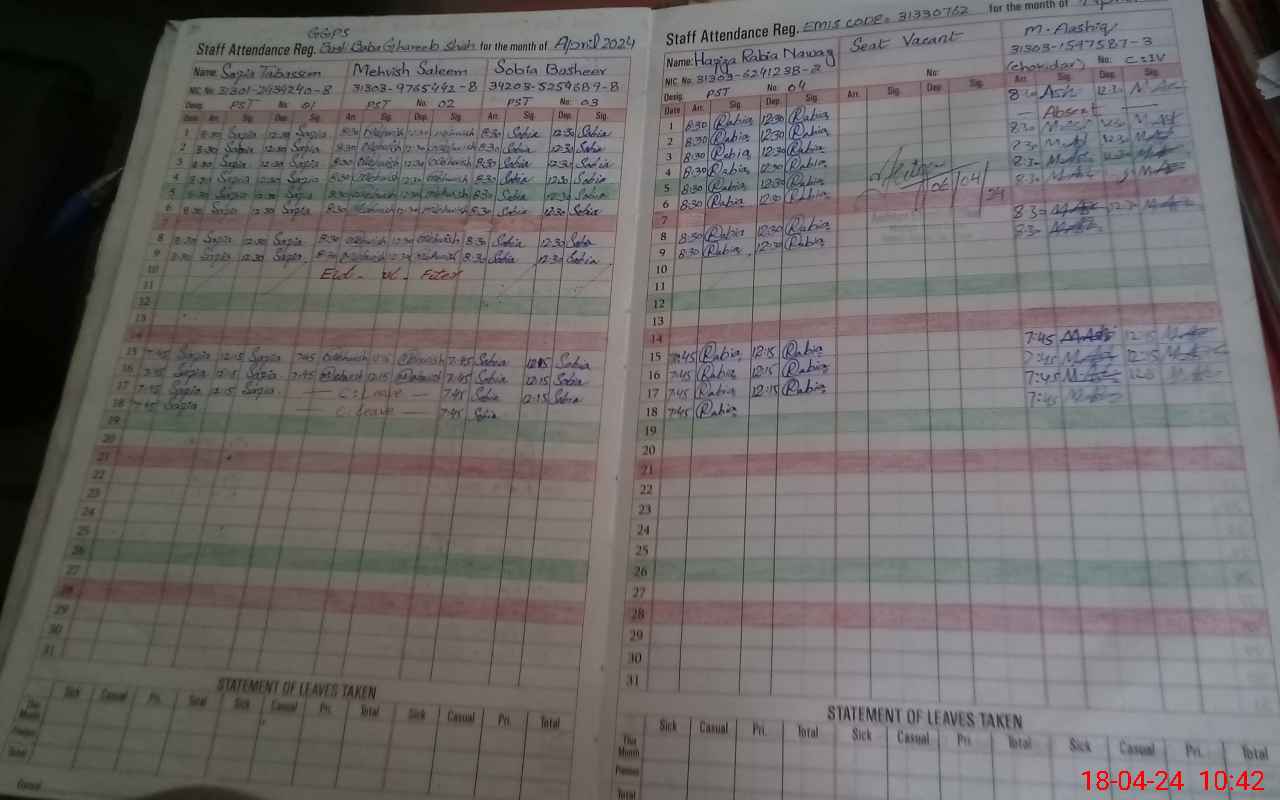 GGPS
Staff Attendance Reg. Basti Baba Ghareeb Shah for the month of April 2024
Name: Sazia Tabassem Mehvish Saleem Sobia Basheer
NIC No. 31303-9765442-8 34203-5259689-8
Desig. PST No: 01 PST No: 02 PST No: 03
Date Arr. Sig. Dep. Sig. Arr. Sig. Dep. Sig. Arr. Sig. Dep. Sig.
1 8:30 Sazia 12:30 Sazia 8:30 Mehvish 12:30 Mehvish 8:30 Sobia 12:30 Sobia
2 8:30 Sazia 12:30 Sazia 8:30 Mehvish 12:30 Mehvish 8:30 Sobia 12:30 Sobia
3 8:30 Sazia 12:30 Sazia 8:30 Mehvish 12:30 Mehvish 8:30 Sobia 12:30 Sobia
4 8:30 Sazia 12:30 Sazia 8:30 Mehvish 12:30 Mehvish 8:30 Sobia 12:30 Sobia
5 8:30 Sazia 12:30 Sazia 8:30 Mehvish 12:30 Mehvish 8:30 Sobia 12:30 Sobia
6 8:30 Sazia 12:30 Sazia 8:30 Mehvish 12:30 Mehvish 8:30 Sobia 12:30 Sobia
7
8 8:30 Sazia 12:30 Sazia 8:30 Mehvish 12:30 Mehvish 8:30 Sobia 12:30 Sobia
9 8:30 Sazia 12:30 Sazia 8:30 Mehvish 12:30 Mehvish 8:30 Sobia 12:30 Sobia
10 Eid - ul - Fiter
11
12
13
14
15 7:45 Sazia 12:15 Sazia 7:45 Mehvish 12:15 Mehvish 7:45 Sobia 12:15 Sobia
16 7:45 Sazia 12:15 Sazia 7:45 Mehvish 12:15 Mehvish 7:45 Sobia 12:15 Sobia
17 7:45 Sazia 12:15 Sazia — C: Leave — 7:45 Sobia 12:15 Sobia
18 7:45 Sazia — C: Leave 7:45 Sobia
19
20
21
22
23
24
25
26
27
28
29
30
31
STATEMENT OF LEAVES TAKEN
Sick Casual Pri. Total Sick Casual Pri. Total Sick Casual Pri. Total
This Month
Previous
Total
Staff Attendance Reg. EMIS CODE= 31330762 for the month of
Name: Haziqa Rabia Nawaz Seat Vacant M. Aashiq
NIC No. 31303-6241238-2 31303-1547587-3
(chokidar) No: C=IV
Desig. PST No: 04 No:
Date Arr. Sig. Dep. Sig. Arr. Sig. Dep. Sig. Arr. Sig. Dep. Sig.
1 8:30 Rabia 12:30 Rabia 8:30 Ash 12:30
2 8:30 Rabia 12:30 Rabia — Absent —
3 8:30 Rabia 12:30 Rabia 8:30 12:30
4 8:30 Rabia 12:30 Rabia 8:30 12:30
5 8:30 Rabia 12:30 Rabia 8:30 12:30
6 8:30 Rabia 12:30 Rabia 06/04/24 8:30
7
8 8:30 Rabia 12:30 Rabia 8:30 12:30
9 8:30 Rabia 12:30 Rabia 8:30
10
11
12
13
14
15 7:45 Rabia 12:15 Rabia 7:45 12:15
16 7:45 Rabia 12:15 Rabia 7:45 12:15
17 7:45 Rabia 12:15 Rabia 7:45
18 7:45 Rabia 7:45
19
20
21
22
23
24
25
26
27
28
29
30
31
STATEMENT OF LEAVES TAKEN
Sick Casual Pri. Total Sick Casual Pri. Total Sick Casual Pri. Total
This Month
Previous
Total
18-04-24 10:42